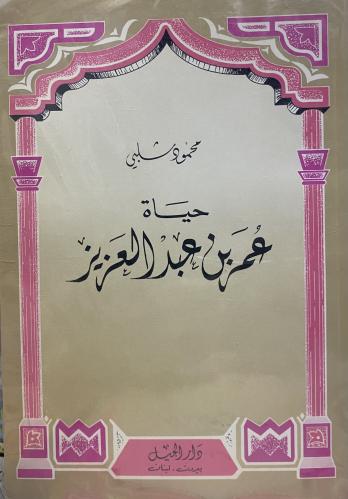 محمود شلبي
حياة
عمر بن عبد العزيز
دار الجيل
بيروت . لبنان